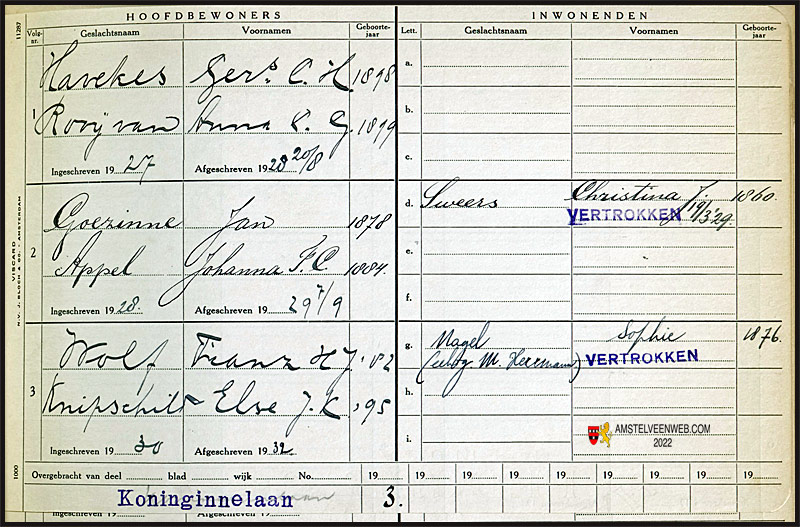 HOOFDBEWONERS
INWONENDEN
Volg-nr. Geslachtsnaam Voornamen Geboorte-jaar Lett. Geslachtsnaam Voornamen Geboorte-jaar
11287
1
Havekes Gers. C. H. 1898
Rooij van Anna P. G. 1899
Ingeschreven 1927 Afgeschreven 1928 20/8
a.
b.
c.
2
Goezinne Jan 1878
Appel Johanna F. C. 1884.
Ingeschreven 1928. Afgeschreven 19 29 7/9
d. Sweers Christina J. 1860.
VERTROKKEN 19/3'29.
e.
f.
3
Wolf Franz H J '02
Knipschild Else J. K. '95
Ingeschreven 1930 Afgeschreven 1932
g. Nagel Sophie 1876.
(echtg. M. Herrmann) VERTROKKEN
h.
i.
AMSTELVEENWEB.COM
2022
VISCARD
N.V. J. BLOCH & CO. AMSTERDAM
1000
Overgebracht van deel blad wijk No. 19 19 19 19 19 19 19 19 19
Koninginnelaan 3.
Ingeschreven 19 Afgeschreven 19